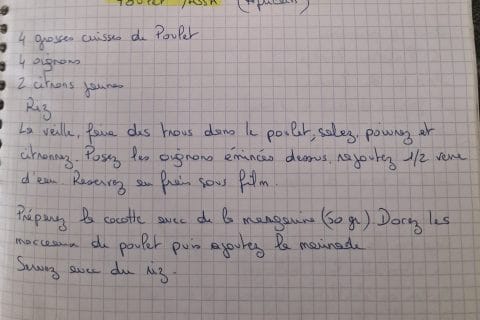 Poulet Yassa (Africain)
4 grosses cuisses de Poulet
4 oignons
2 citrons jaunes
Riz
La veille, faire des trous dans le poulet, salez, poivrez et
citronnez. Posez les oignons émincés dessus, rajoutez 1/2 verre
d'eau. Reservez au frais sous film.
Préparez la cocotte avec de la margarine (50 gr) Dorez les
morceaux de poulet puis ajoutez la marinade
Servez avec du riz.